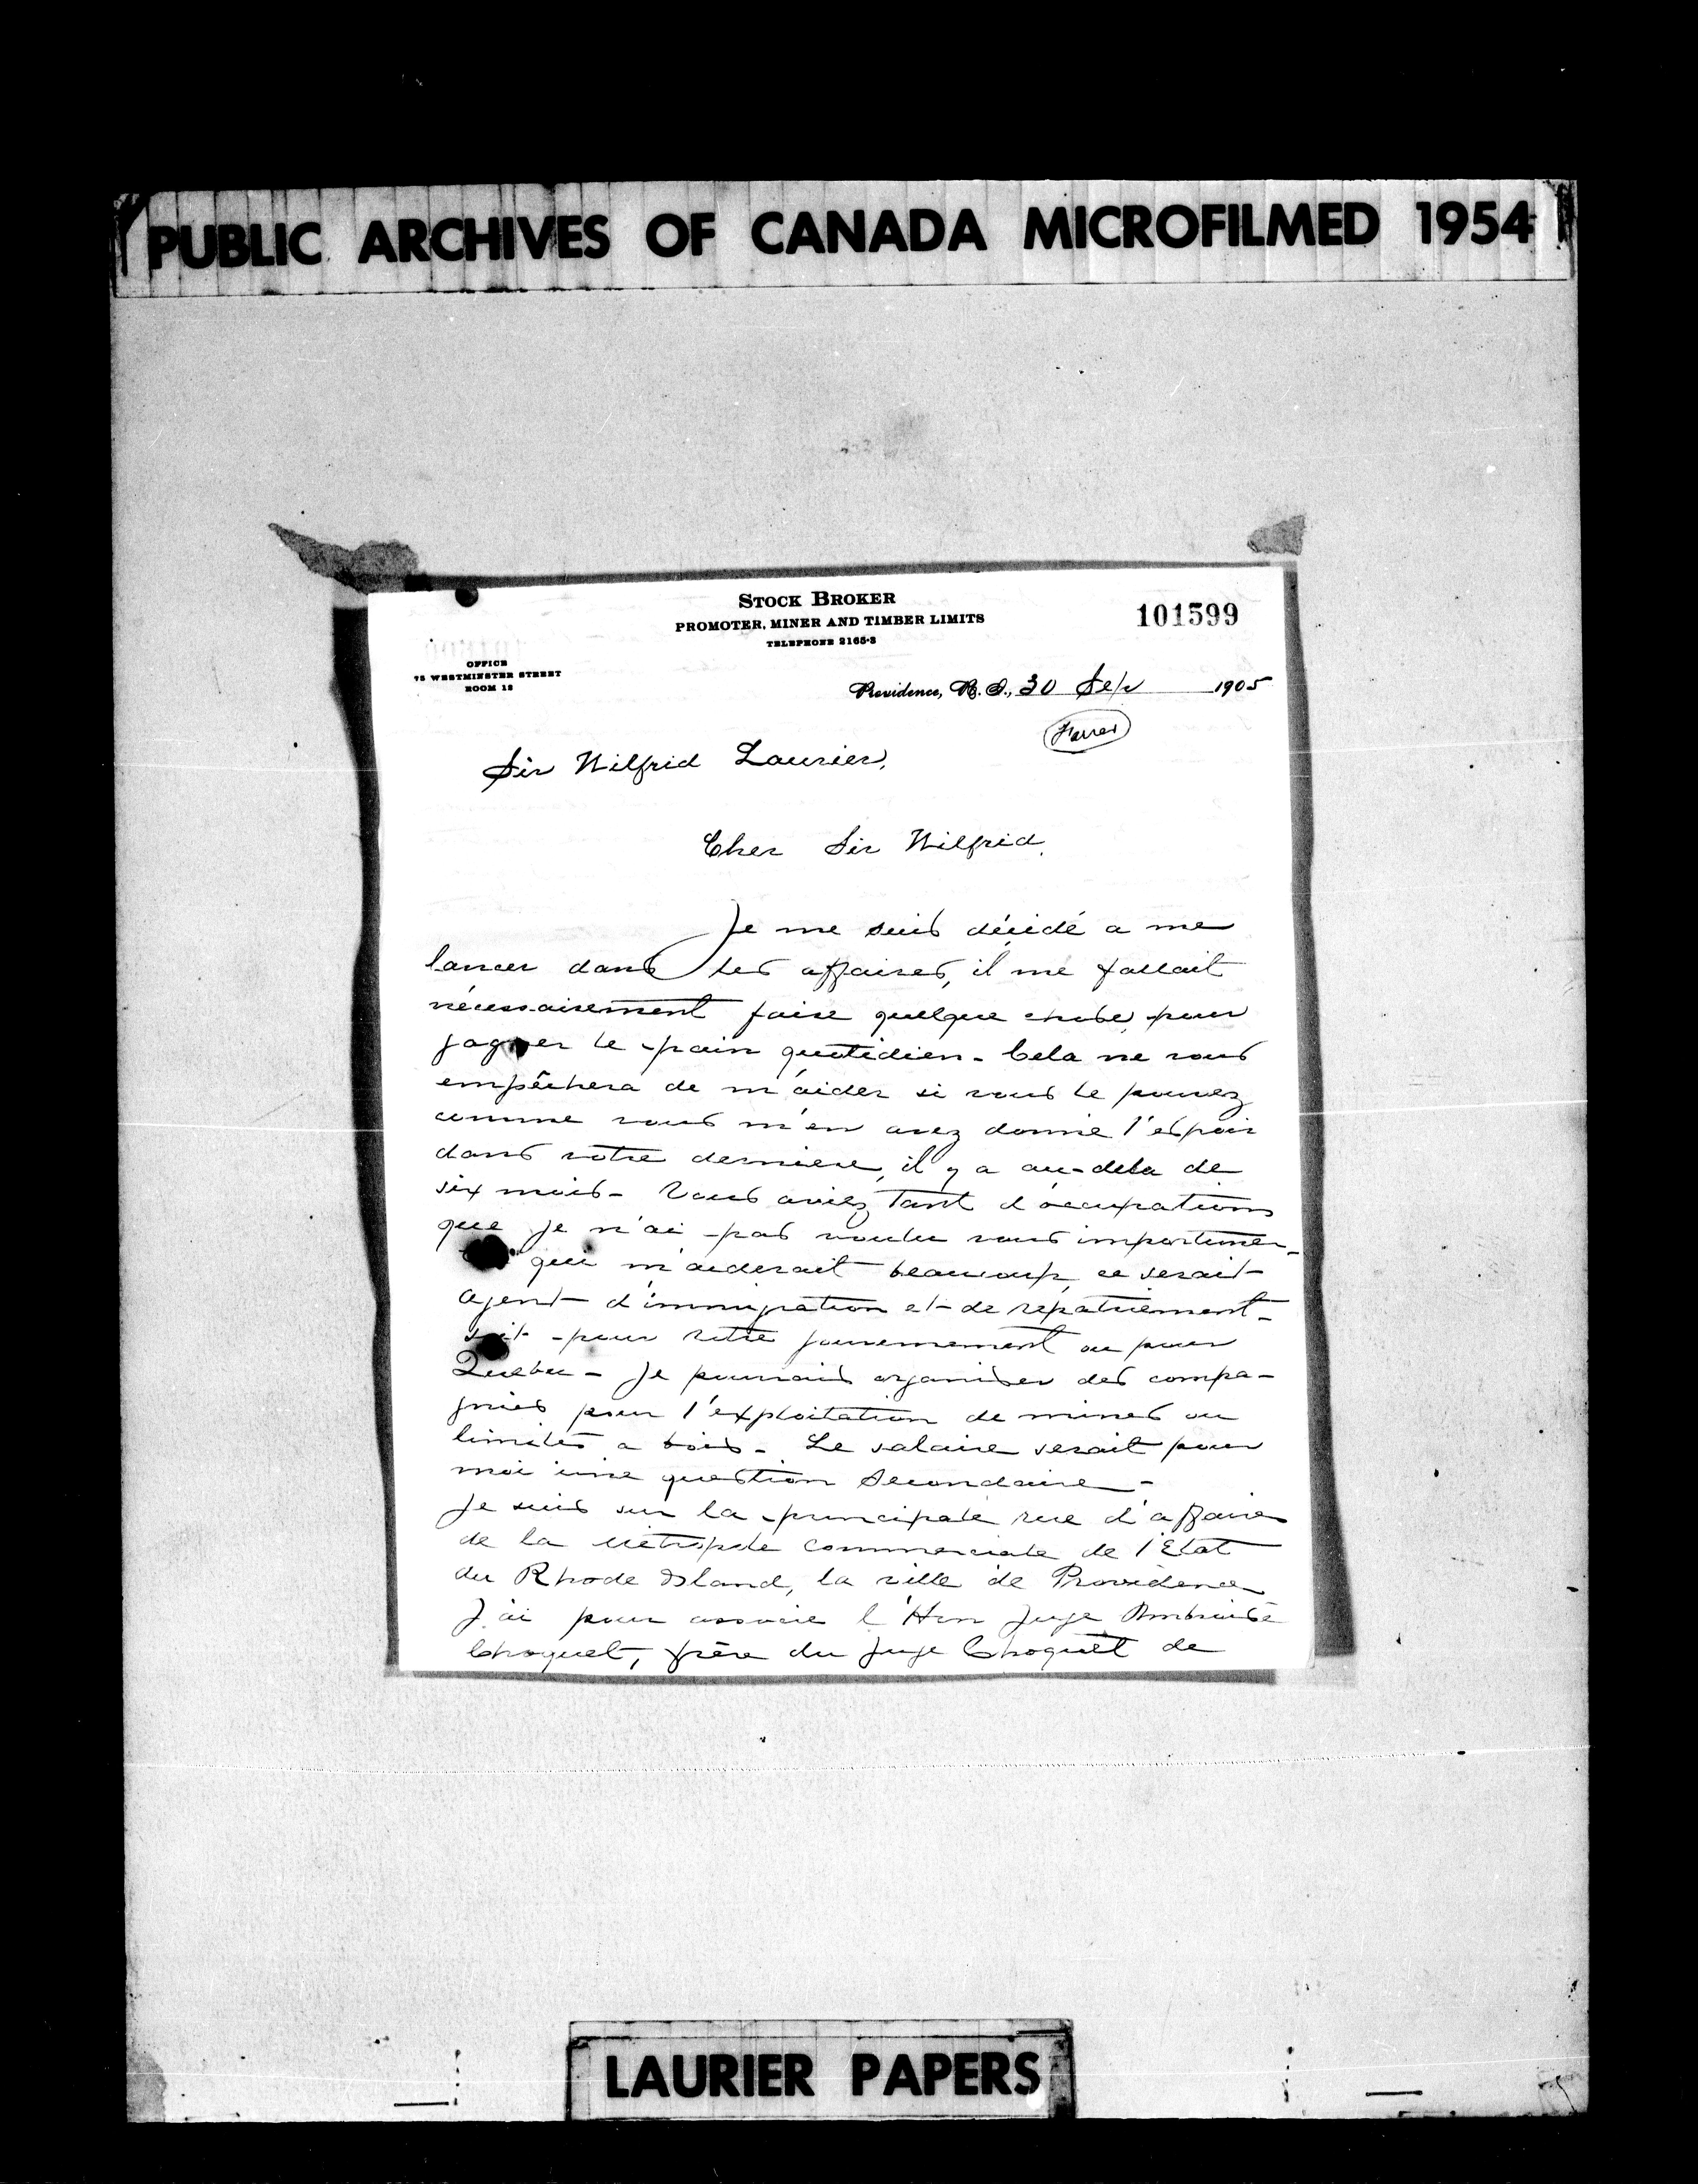 PUBLIC ARCHIVES OF CANADA MICROFILMED 1954
STOCK BROKER
PROMOTER, MINER AND TIMBER LIMITS
TELEPHONE 2165-3
101599
OFFICE
75 WESTMINSTER STREET
ROOM 18
Providence, R. I., 30 Sep 1905
Sir Wilfrid Laurier,
Cher Sir Wilfrid,
Je me suis décidé a me
lancer dans les affaires, il me fallait
nécessairement faire quelque chose pour
gagner le pain quotidien - Cela ne vous
empêchera de m'aider si vous le pouvez
comme vous m'en avez donné l'espoir
dans votre derniere, il y a au-dela de
six mois - Vous aviez tant d'occupations
que je n'ai pas voulu vous importuner -
qui m'aiderait beaucoup, ce serait
agent d'immigration et de repatriement -
soit - pour votre gouvernement ou pour
Quebec - Je pourrais organiser des compa-
gnies pour l'exploitation de mines ou
limites a bois - Le salaire serait pour
moi une question secondaire -
Je suis sur la principale rue d'affaires
de la Métropole commerciale de l'Etat
du Rhode Island, la ville de Providence
J'ai pour associé l'Hon Juge Ambroise
Choquet, frère du Juge Choquet de
LAURIER PAPERS